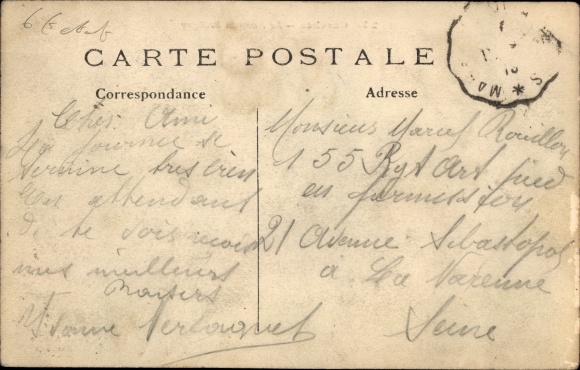 CARTE POSTALE
Correspondance
Cher Ami
La journée se
termine tres bien
En attendant
de te
mes meilleurs
Baisers
Adresse
Monsieur Marcel Rouillon
155 Rgt Art pied
en permission
21 Avenue Sebastopol
a La Varenne
Seine